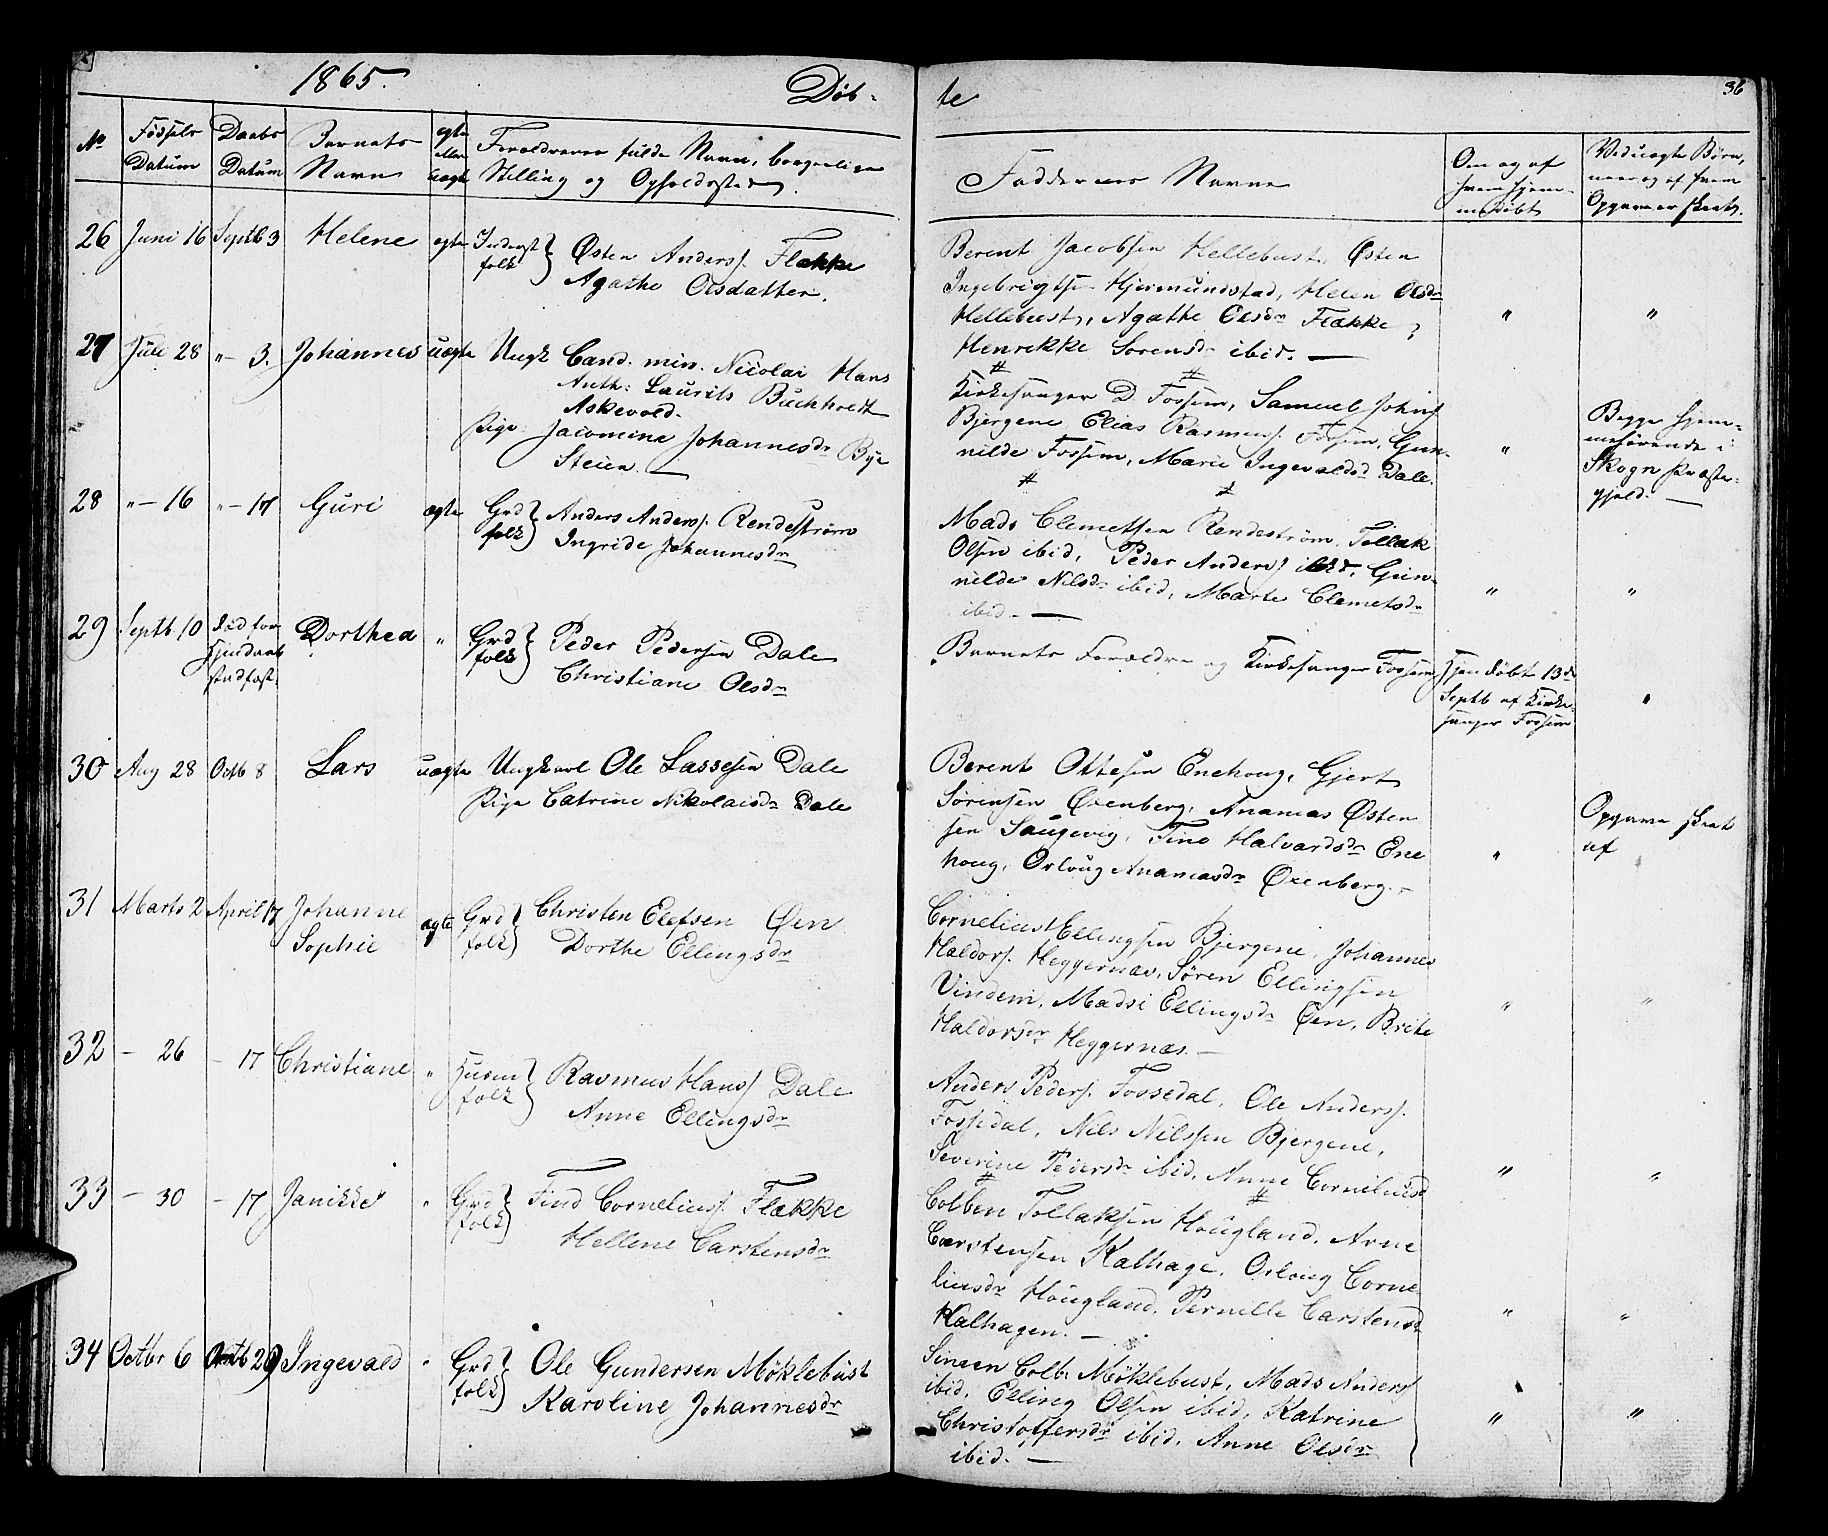 1865. Døb- te 36
No Fødsels Datum Daabs Datum Barnets Navn ægte eller uægte Forældrenes fulde Navn, borgerlige Stilling og Opholdssted. Faddernes Navne Om og af hvem hjemmedøbt Ved uægte Børn, naar og af hvem Opgave er skeet.
26 Juni 16 Septb 3 Helene ægte Inderst folk Østen Anders. Flække
Agathe Olsdatter.
Berent Jacobsen Hellebust, Østen
Ingebrigtsen Hjermundstad, Helen Olsdr
Hellebust, Agathe Olsdr Flække,
Henrikke Sørensdr ibid. —
27 Juli 28 "— 3. Johannes uægte Ungk Cand. min. Nicolai Hans
Anth: Laurits Buchholdt
Askevold.
Pige: Jacomine Johannesdr Bye
Steien. —
Kirkesanger D. Fossum, Samuel Johns.
Bjergene, Elias Rasmus. Fossum, Gun-
nilde Fossum, Marie Ingevaldsdr Dale.
Begge hjem-
mehørende i
Skogn Præste-
gjeld. —
28 "— 16 "— 17 Guri ægte Grd folk Anders Anders. Rendestrøm
Ingride Johannesdr
Mads Clemetsen Rendestrøm, Tollak
Olsen ibid, Peder Anders. ibid, Gun-
nilde Nilsdr ibid, Marte Clemetsdr
ibid. —
29 Septb 10 Død før
hjemdaab
stadfæst. Dorthea " Grd folk Peder Pedersen Dale
Christiane Olsdr
Barnets Forældre og Kirkesanger Fossum
Hjemdøbt 13de
Septb af Kirke-
sanger Fossum
30 Aug 28 Octb 8 Lars uægte Ungkarl Ole Lassesen Dale
Pige Catrine Nikolaisdr Dale
Berent Ottesen Enehoug, Gjert
Sørensen Øxenberg, Ananias Østen
sen Saugevig, Tine Halvardsdr Ene
houg, Orloug Ananiasdr Øxenberg. -
Opgave skeet
af
31 Marts 2 April 17 Johanne
Sophie ægte Grd folk Christen Elefsen Øen
Dorthe Ellingsdr
Cornelius Ellingsen Bjergene, Johannes
Haldors. Heggernæs, Søren Ellingsen
Vindem, Madsi Ellingsdr Øen, Brite
Haldorsdr Heggernæs. —
32 — 26 — 17 Christiane " Husm folk Rasmus Hans. Dale
Anne Ellingsdr
Anders Peders. Fossedal, Ole Anders.
Fossedal, Nils Nilssen Bjergene,
Severine Pedersdr ibid, Anne Corneliusd
33 — 30 — 17 Janikke " Grd folk Find Cornelius. Flække
Hellene Carstensdr
Colben Tollaksen Hougland, Arne
Carstensen Kalhage, Orloug Corne
liusdr Hougland, Pernille Carstensdr
Kalhagen. —
34 Octbr 6 Octb 29 Ingevald " Grd folk Ole Gundersen Møklebust
Karoline Johannesdr
Simen Colb. Møklebust, Mads Anders.
ibid, Elling Olsen ibid, Katrine
Christoffersdr ibid, Anne Olsdr
ibid. —